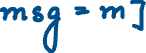 msg = m]